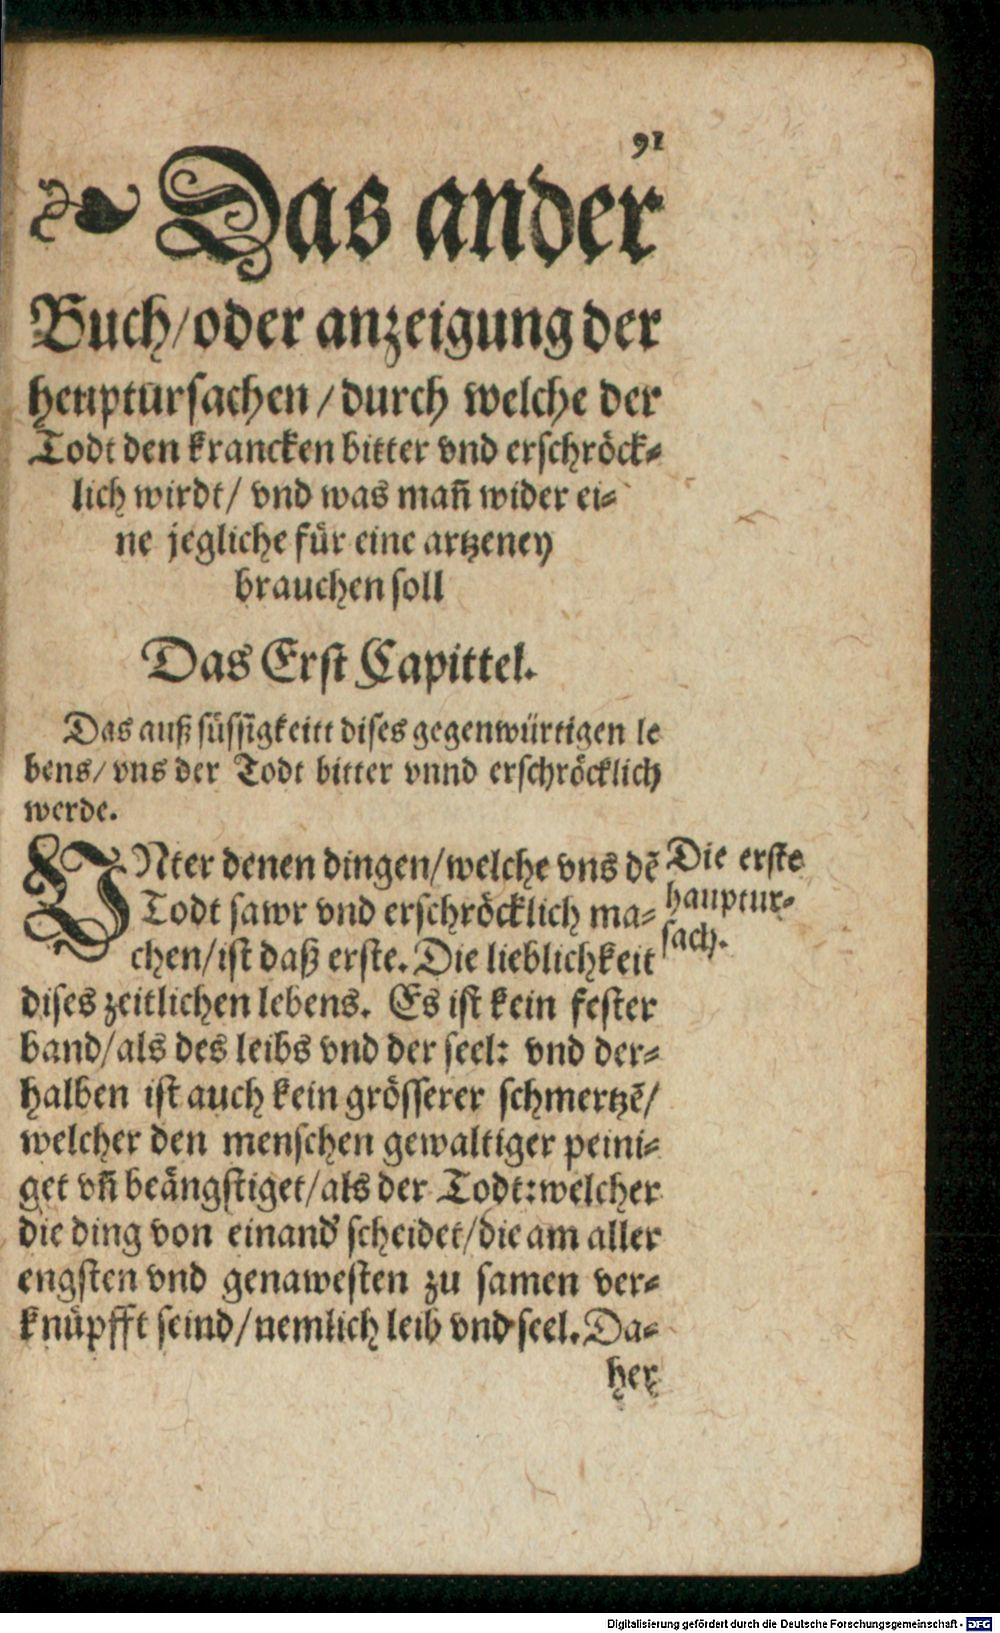 91
Das ander
Buch/oder anzeigung der
heuptursachen/durch welche der
Todt den krancken bitter vnd erschröck-
lich wirdt/ vnd was mañ wider ei-
ne jegliche für eine artzeney
brauchen soll
Das Erst Capittel.
Das auß süssigkeitt dises gegenwürtigen le
bens/ vns der Todt bitter vnnd erschröcklich
werde.
VNter denen dingen/welche vns dē
Todt sawr vnd erschröcklich ma-
chen/ist daß erste. Die lieblichkeit
dises zeitlichen lebens. Es ist kein fester
band/als des leibs vnd der seel: vnd der-
halben ist auch kein grösserer schmertzē/
welcher den menschen gewaltiger peini-
get vñ beängstiget/als der Todt:welcher
die ding von einand' scheidet/die am aller
engsten vnd genawesten zu samen ver-
knüpfft seind/nemlich leib vnd seel. Da-
her
Die erste
hauptur-
sach.
Digitalisierung gefördert durch die Deutsche Forschungsgemeinschaft - DFG